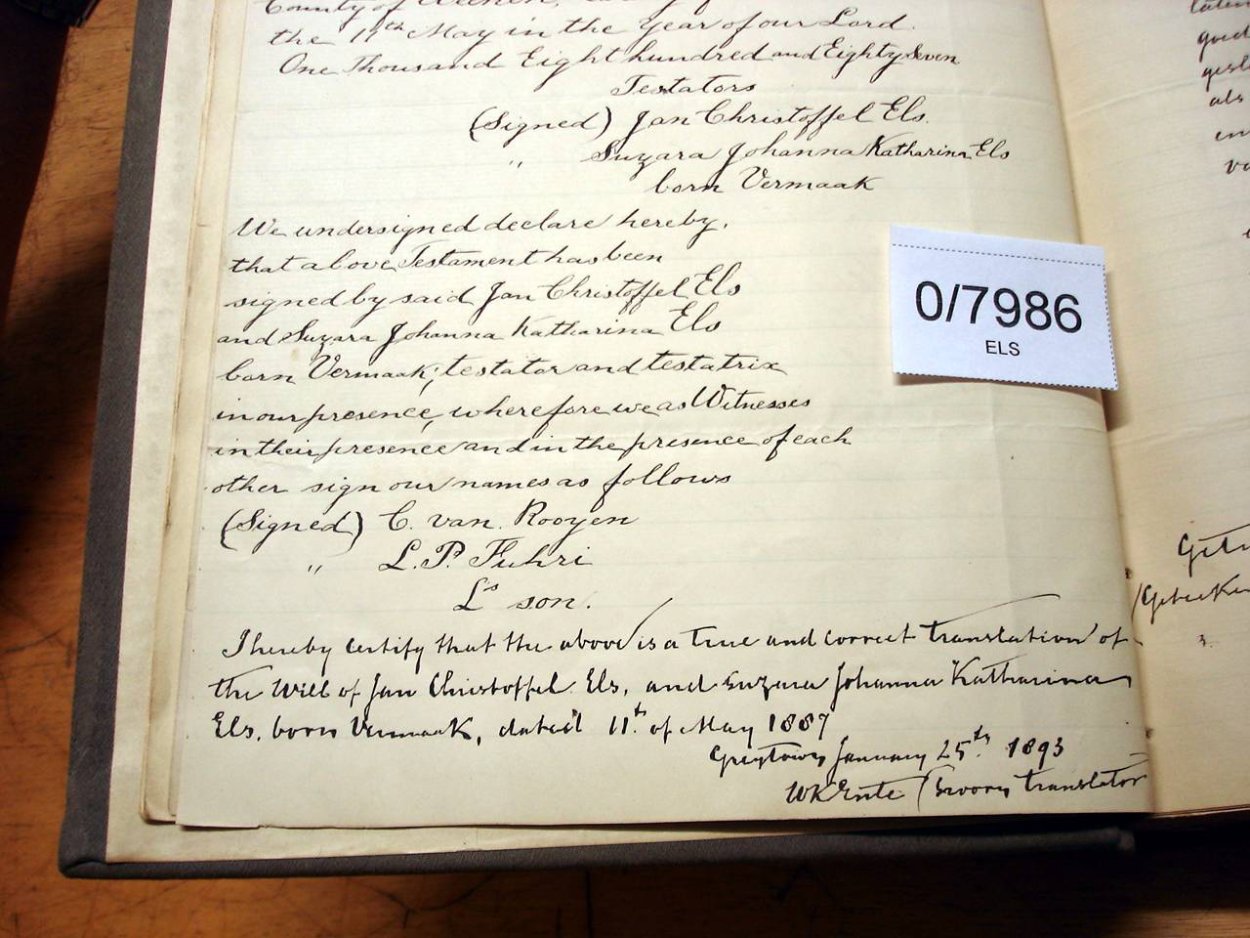 County of Weenen,
the 11th May in the Year of our Lord.
One Thousand Eight hundred and Eighty Seven
Testators
(Signed) Jan Christoffel Els.
" Suzara Johanna Katharina Els
born Vermaak
We undersigned declare hereby,
that above Testament has been
signed by said Jan Christoffel Els
and Suzara Johanna Katharina Els
born Vermaak; testator and testatrix
in our presence, wherefore we as Witnesses
in their presence and in the presence of each
other sign our names as follows
(Signed) C. van. Rooyen
" L. P. Fuhri
Ls son.
I hereby certify that the above is a true and correct translation of
the Will of Jan Christoffel Els, and Suzara Johanna Katharina
Els, born Vermaak, dated 11th of May 1887
Greytown January 25th 1893
WK Ente (Sworn translator
0/7986
ELS
als